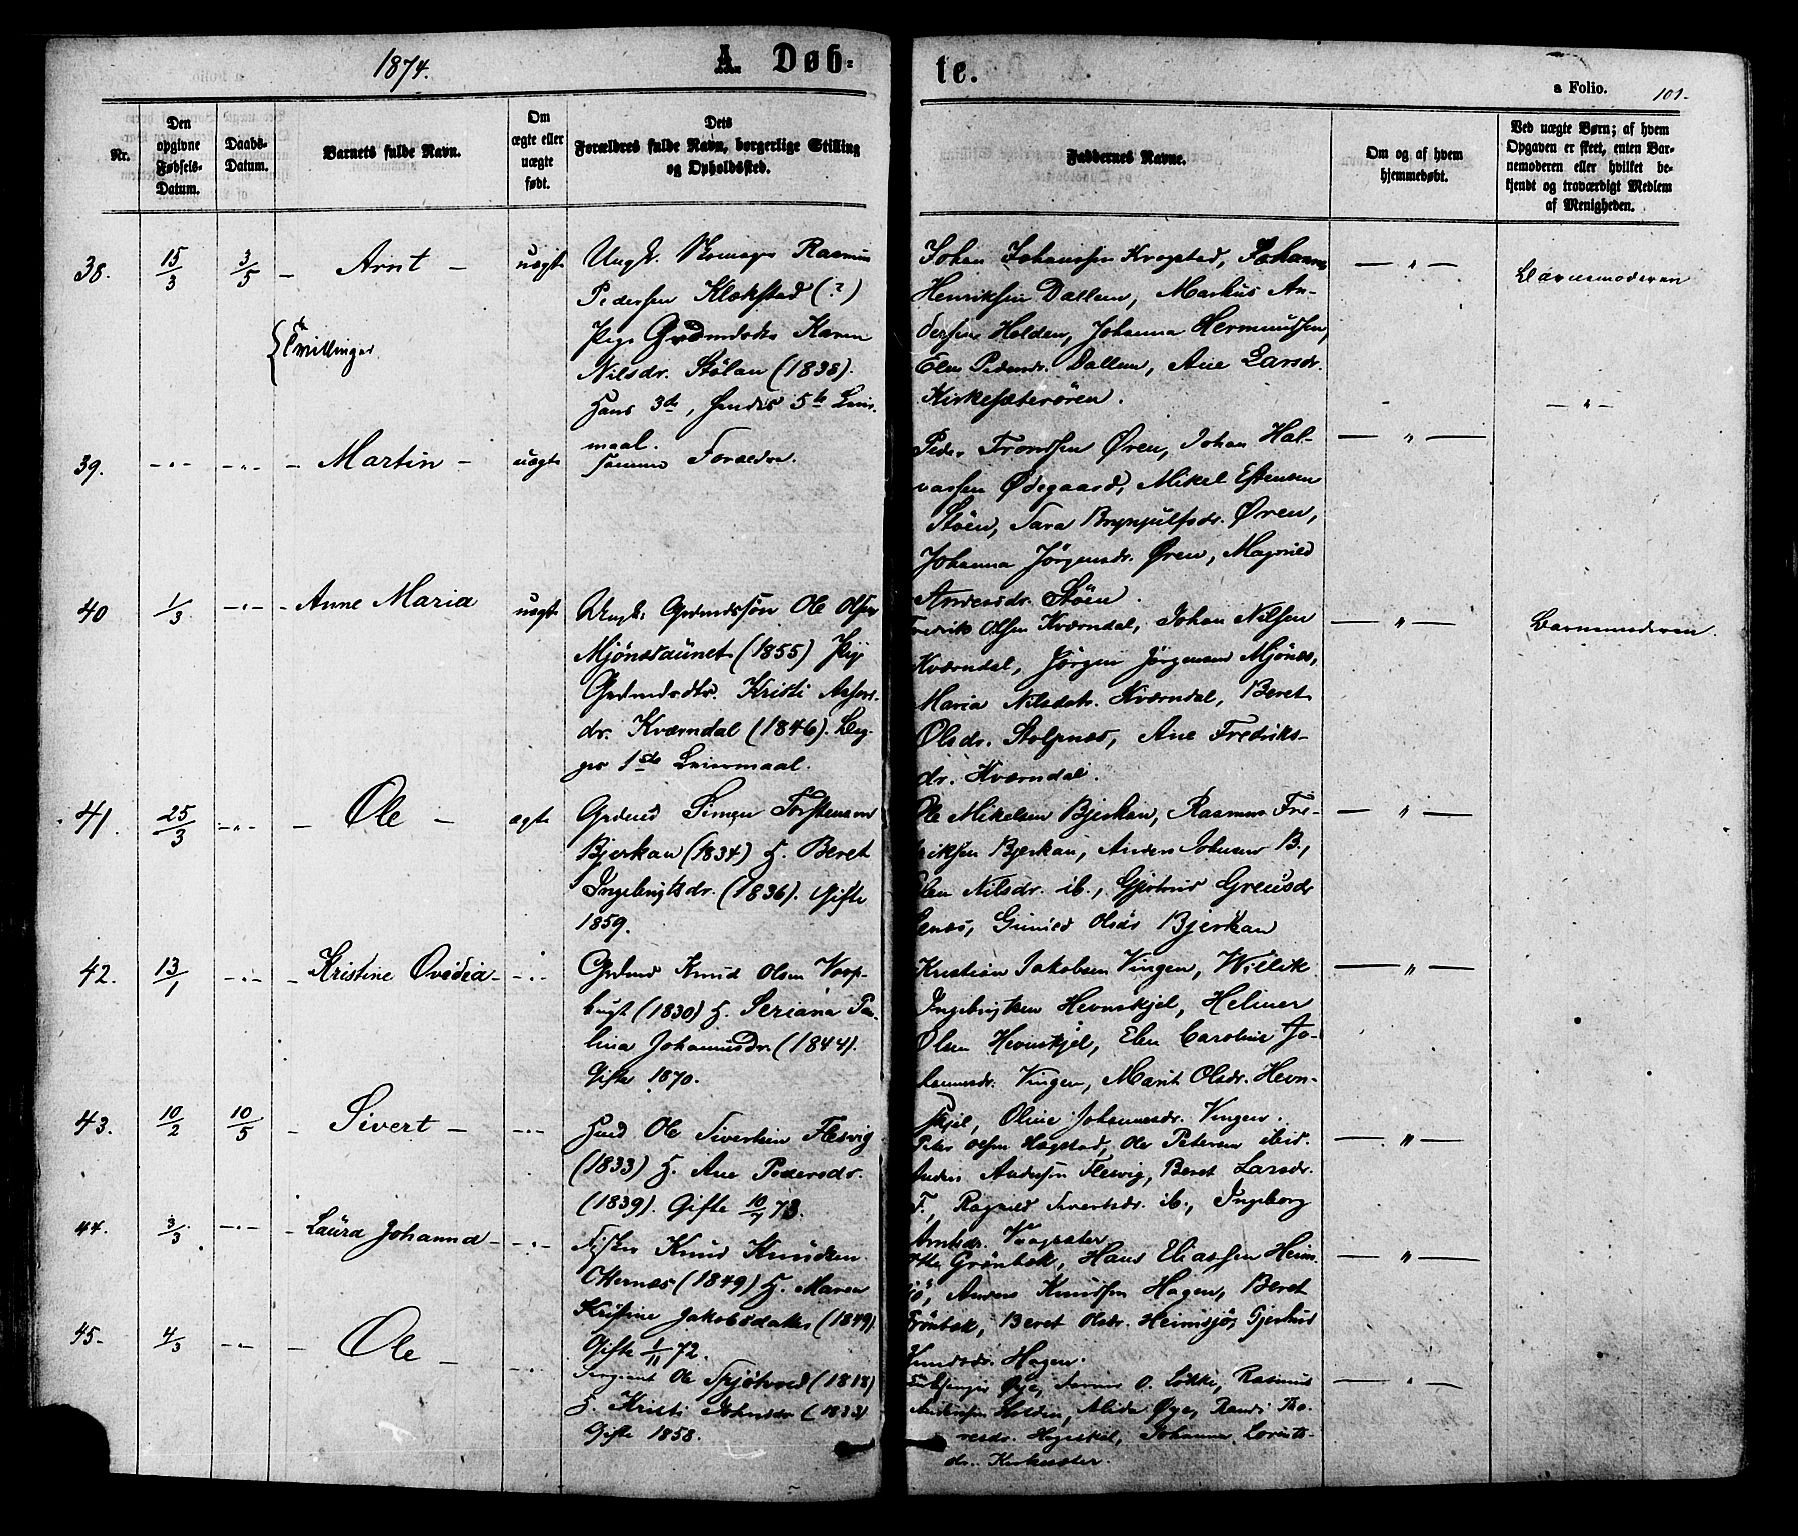 1874.
A. Døb-
te.
a Folio.
101.
Nr.
Den opgivne Fødsels-Datum.
Daabs-Datum.
Barnets fulde Navn.
Om ægte eller uægte født.
Dets Forældres fulde Navn, borgerlige Stilling og Opholdssted.
Faddernes Navne.
Om og af hvem hjemmedøbt.
Ved uægte Børn; af hvem Opgaven er skeet, enten Barnemoderen eller hvilket bekjendt og troværdigt Medlem af Menigheden.
38. 15/3 3/5 - Arnt - uægte
{Tvillinger
Ungk. Skomager Rasmus
Pedersen Klækstad (?)
Pige Grdmdsdtr Karen
Nilsdr. Stølan (1838).
Hans 3de, hendes 5te Leier-
maal.
Johan Johanssen Krogstad, Johannes
Henriksen Dallem, Markus An-
dersen Holden, Johanna Hermundsen,
Elen Pedersdr. Dallem, Ane Larsdr.
Kirkesæterøren.
— " —
Barnemoderen
39. -"- -"- - Martin - uægte
samme Forældre.
Peder Trondsen Øren, Johan Hal-
vassen Ødegaard, Mikel Estensen
Støen, Sara Brynjulfsdr. Øren,
Johanna Jørgensdr. Øren, Magnild
Andersdr. Støen.
— " —
— " —
40 1/3 -"- - Anne Maria uægte
Ungk. Grdmdssøn Ole Olsen
Mjønestaunet (1855) Pig
Grdmdsdtr. Kristi Anfins
dr. Kværndal (1846). Beg-
ges 1ste Leiermaal.
Fredrik Olsen Kværndal, Johan Nilsen
Kværndal, Jørgen Jørgensen Mjønes,
Maria Nilsdtr. Kværndal, Beret
Olsdr. Stolpnes, Ane Fredriks-
dr. Kværndal.
— " —
Barnemoderen.
41. 25/3 -"- - Ole - ægte
Grdmd Simen Torstensen
Bjerkan (1834) H. Beret
Ingebrigtsdr. (1836). Gifte
1859.
Ole Mikelsen Bjerkan, Rasmus Fre-
driksen Bjerkan, Anders Johnsen B.,
Elen Nilsdr. ib., Gjertrud
Gunild Olsdr Bjerkan
— " —
42. 13/1 -"- - Kristine Ovidia - -"-
Grdmd Knud Olsen Vaag-
bugt (1830) H. Seriana Pau-
lina Johannesdr. (1844).
Gifte 1870.
Kristian Jakobsen Vingen, Willik
Ingebrigtsen Hevnskjel, Helmer
Olsen Hevnskjel, Elen Caroline Jo-
hannesdr. Vingen, Marit Olsdr. Hevn-
skjel, Oline Johannesdr. Vingen.
— " —
43. 10/2 10/5 - Sivert - -"-
Husmd Ole Sivertsen Flesvig
(1833) H. Ane Pedersdr.
(1839). Gifte 10/7 73.
Peter Olsen Hagstad, Ole Petersen ibid.
Anders Andersen Flesvig, Beret Larsdr.
F., Ragnild Sivertsdr. ib., Ingeborg
Arntsdr.
— " —
44. 3/3 -"- - Laura Johanna - -"-
Fisker Knud Knudsen
Otternes (1849) H. Maren
Kristine Jakobsdatter (1849)
Gifte 1/11 72.
Grønbæk, Hans Eliassen Heim-
sjø, Anders Knudsen Hagen, Beret
Grønbæk, Beret Olsdr. Heimsjø, Gjertrud
Knudsdr. Hagen.
— " —
45. 4/3 -"- - Ole - -"-
Sergeant Ole Skjølsvold (1818)
H. Kristi Johnsdr (1833)
Gifte 1858.
Øye, O. Løkke, Rasmus
Andersen Holden, Alida Øye, Randi Tho-
resdr. Hegnskel, Johanna Lorents-
dr. Kirksæter.
— " —